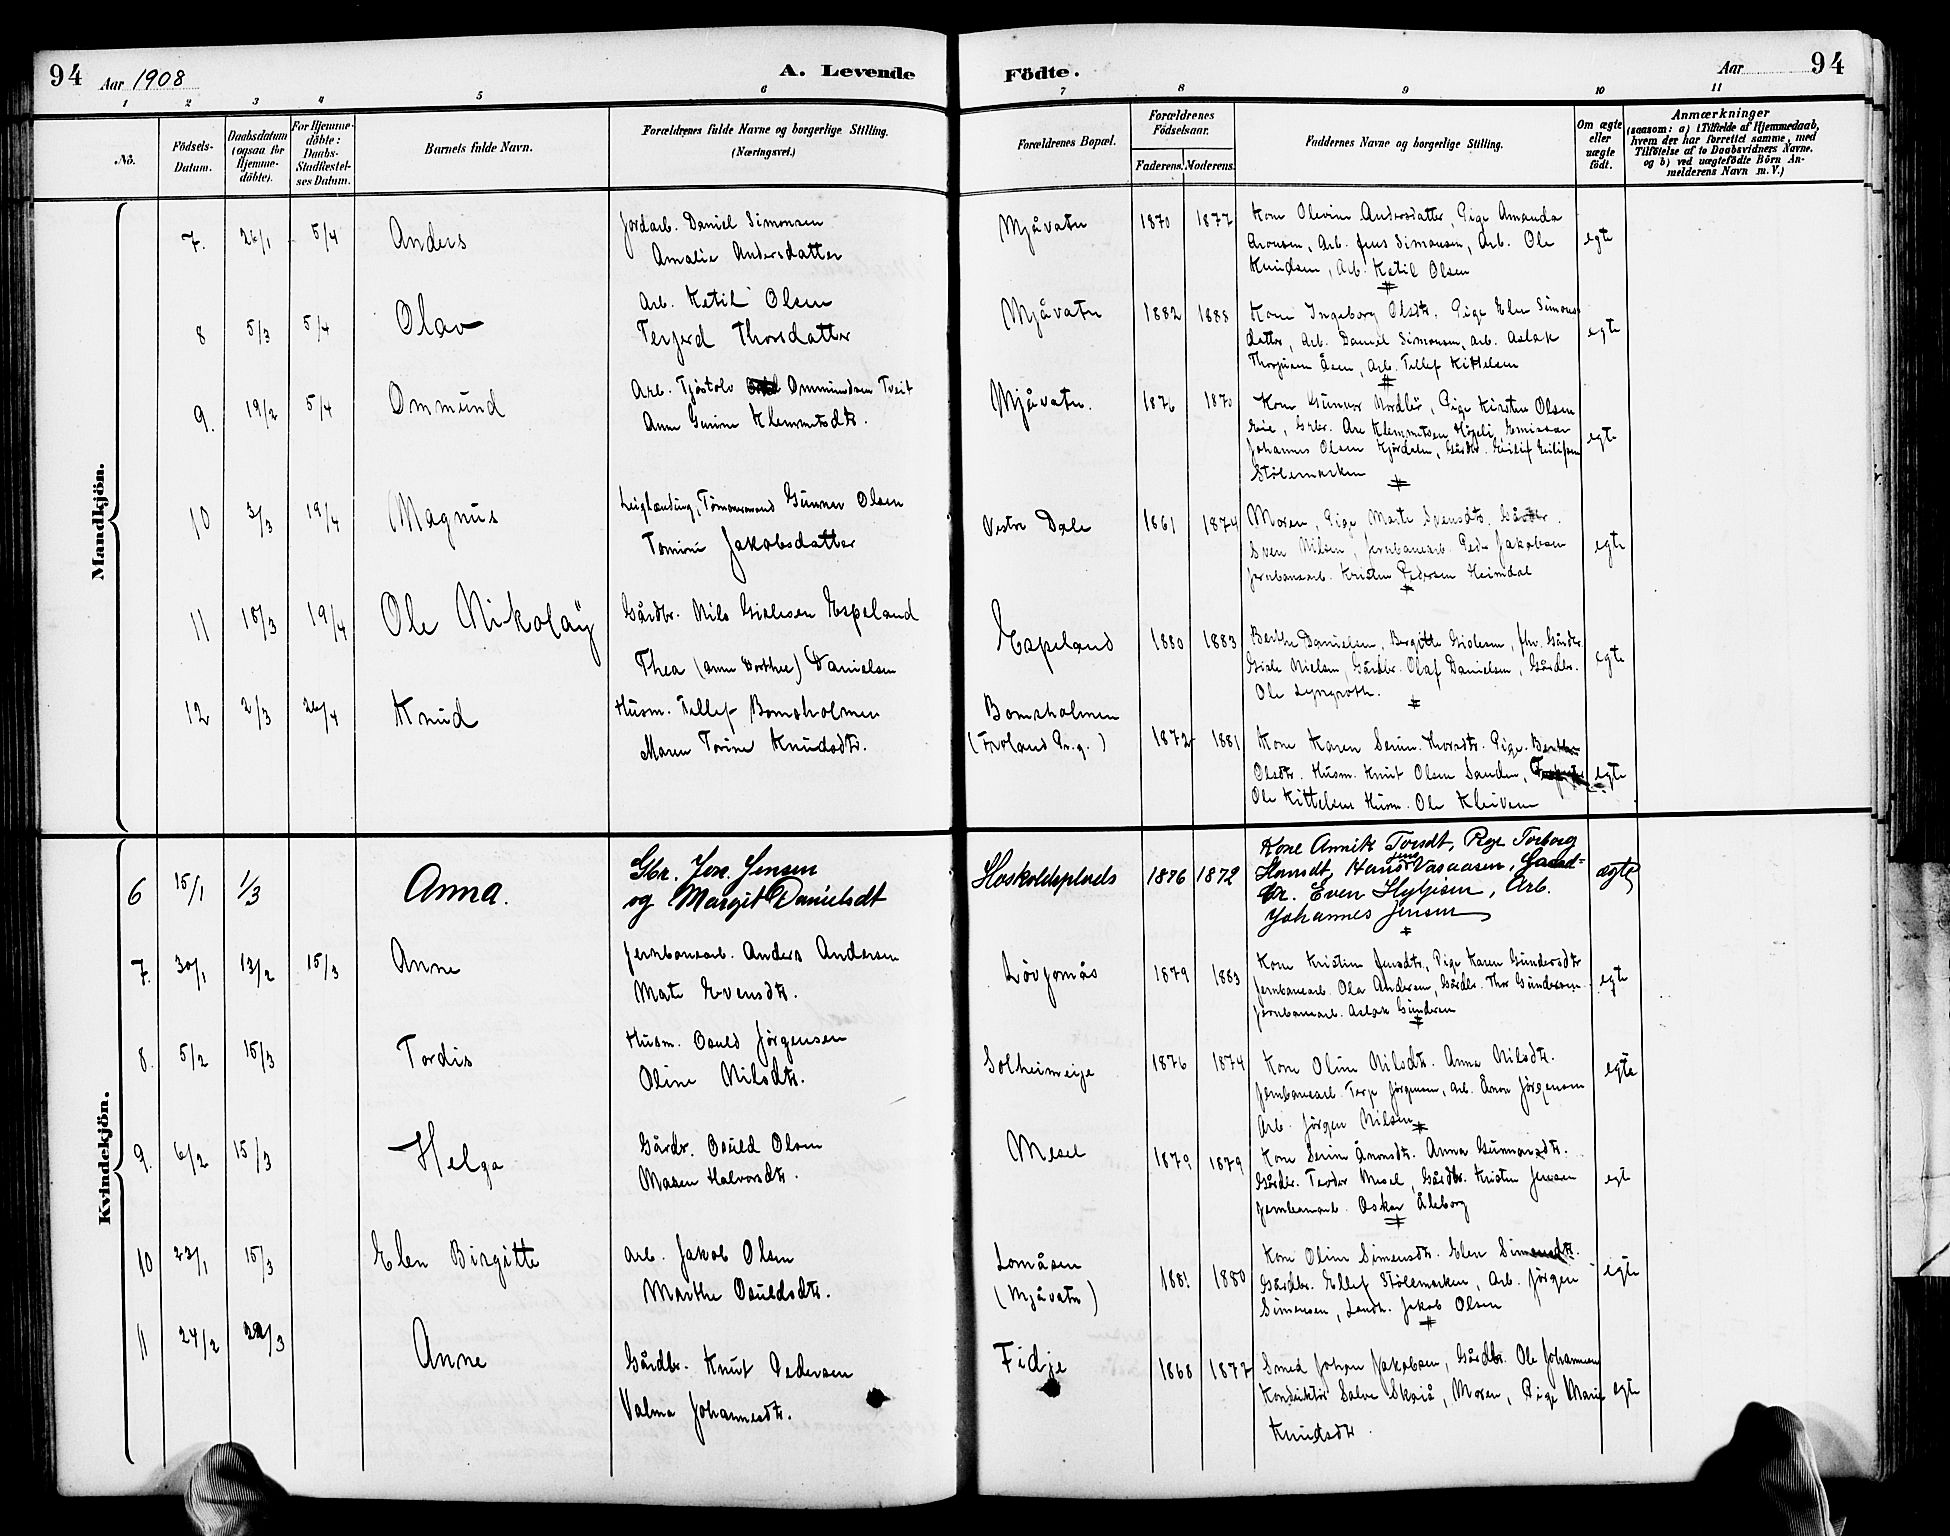 94 Aar 1908 A. Levende Födte. Aar 94
1 2 3 4 5 6 7 8 9 10 11
No. Födsels-Datum. Daabsdatum (ogsaa for Hjemmedöbte). For Hjemmedöbte: Daabs-Stadfæstelses Datum. Barnets fulde Navn. Forældrenes fulde Navne og borgerlige Stilling. (Næringsvei.)
Forældrenes Bopæl. Forældrenes Födselsaar. Faderens. Moderens. Faddernes Navne og borgerlige Stilling. Om ægte eller uægte födt.
Anmærkninger
(saasom: a) i Tilfælde af Hjemmedaab,
hvem der har forrettet samme, med
Tilföielse af to Daabsvidners Navne.
og b) ved uægtefödte Börn An-
melderens Navn m. V.)
Mandkjön.
7. 26/1 5/4 Anders
Jordarb. Daniel Simonsen
Amalie Andersdatter
Mjåvatn 1870 1877
Kone Olevine Andersdatter, Pige Amanda
Aronsen, Arb. Jens Simonsen, Arb. Ole
Knudsen, Arb. Ketil Olsen
egte
8 5/3 5/4 Olav
Arb. Ketil Olsen
Terjerd Thorsdatter
Mjåvatn 1882 1888
Kone Ingeborg Olsdtr. Pige Elen Simons-
datter, Arb. Daniel Simonsen, Arb. Aslak
Thorjusen Åsen, Arb. Tellef Kittelsen
egte
9. 19/2 5/4 Ommund
Arb. Tjöstolv Ommundsen Tveit
Anne Gurine Klemmetsdtr.
Mjåvatn. 1876 1870
Kone Gunnor Nordbö, Pige Kirsten Olsen
Eie, Grbr. Are Klemmetsen Högeli, Emissær
Johannes Olsen Hjördalen, Gårdbr. Eilif Eilifsen
Stölemarken
egte
10 3/3 19/4 Magnus
Leiglænding, Tömmermand Gunner Olsen
Tomine Jakobsdatter
Vestre Dale 1861 1874
Moren, Pige Marte Svensdtr. Gårdbr.
Sven Nilsen, Jernbanearb. Peder Jakobsen
Jernbanearb. Kristen Pedersen Heimdal
egte
11 15/3 19/4 Ole Nikolay
Gårdbr. Nils Gislesen Espeland
Thea (Anne Dorthee) Danielsen
Espeland 1880 1883
Berthe Danielsen, Bergitte Gislesen, fhv. Gårdbr.
Gisle Nielsen, Gårdbr. Olaf Danielsen, Gårdbr.
Ole Lyngroth.
egte
12 2/3 26/4 Knud
Husm. Tellef Bomsholmen
Maren Torine Knudsdtr.
Bomsholmen
(Froland Pr.g.) 1872 1881
Kone Karen Serine Thorsdtr. Pige Berthe
Olsdtr. Husm. Knut Olsen Sanden,
Ole Kittelsen Husm. Ole Kleiven
egte
Kvindekjön.
6 15/1 1/3 Anna.
Gbr. Jon. Jensen
og Margit Danielsdt
Hoskoldsplads 1876 1872
Kone Annik Torsdt, Pige Torborg
Hansdt, Hans Jens Vasaasen, Gaard=
br. Even Hylgisen, Arb.
Johannes Jensen
ægte
7. 30/1 13/2 15/3 Anne
Jernbanearb. Anders Andersen
Mate Evensdtr.
Lövjomås 1879 1883
Kone Kristine Jensdtr, Pige Karen Gundersdtr
Jernbanearb. Ola Andersen, Gårdbr. Thor Gundersen
Jernbanearb. Aslak Gundersen
egte
8. 5/2 15/3 Tordis
Husm. Osuld Jörgensen
Oline Nilsdtr.
Solheimeije 1876 1874
Kone Oline Nilsdtr. Anna Nilsdtr.
Jernbanearb. Terje Jörgensen, Arb. Enon Jörgensen
Arb. Jörgen Nilsen
egte
9. 6/2 15/3 Helga
Gårdbr. Osuld Olsen
Maren Halvorsdtr.
Mesel 1879 1879
Kone Serine Aronsdtr. Anna Gunnarsdtr.
Gårdbr. Teodor Mesel, Gårdbr. Kristen Jensen
Jernbanearb. Oskar Åleborg
egte
10 22/1 15/3 Elen Birgitte
Arb. Jakob Olsen
Marthe Osuldsdtr.
Lomåsen
(Mjåvatn) 1880
Kone Oline Simensdtr. Elen Simensdtr.
Gårdbr. Ellef Stölemarken, Arb. Jörgen
Simensen, Landh. Jakob Olsen
egte
11 24/2 22/3 Anne
Gårdbr. Knut Pedersen
Valma Johannesdtr.
Fidje 1868 1872
Smed Johan Jakobsen, Gårdbr. Ole Johannesen
Konduktör Salve Skaiå, Moren, Pige Marie
Knudsdtr.
egte